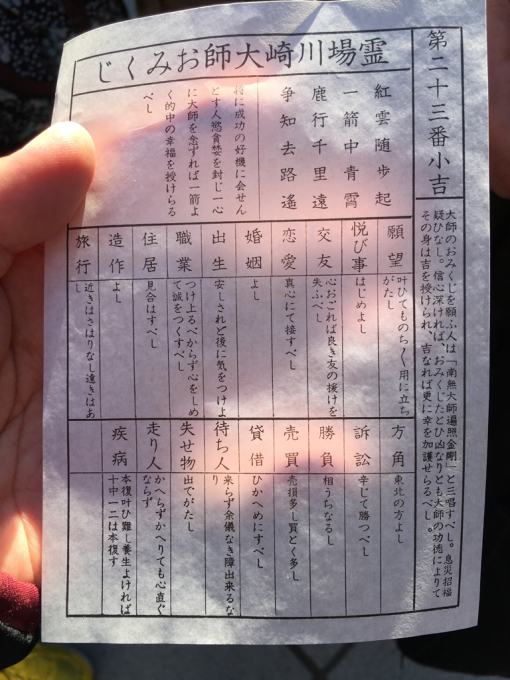 第二十三番小吉
霊場川崎大師おみくじ
大師のおみくじを願ふ人は「南無大師遍照金剛」と三唱すべし。息災招福
疑ひなし。信心深ければ、おみくじたとひ凶なりとも大師の功徳によりて
その身は吉を授けられ、吉なれば更に幸を加護せらるべし。
紅雲随歩起
一箭中青霄
鹿行千里遠
争知去路遙
将に成功の好機に会せん
とす人慾貪婪を封じ一心
に大師を念ずれば一箭よ
く的中の幸福を授けらる
べし
願望
叶ひてものち〱用に立ち
がたし
悦び事
はじめよし
交友
心おごれば良き友の援けを
失ふべし
恋愛
真心にて接すべし
婚姻
よし
出生
安しされど後に気をつけよ
職業
つけ上るべからず心をしめ
て誠をつくすべし
住居
見合はすべし
造作
よし
旅行
近きはさはりなし遠きはあ
し
方角
東北の方よし
訴訟
幸じて勝つべし
勝負
相うちなるし
売買
売損多し買とく多し
貸借
ひかへめにすべし
待ち人
来らず余儀なき障出来るな
り
失せ物
出でがたし
走り人
かへらずかへりても心直ぐ
ならず
疾病
本復叶ひ難し養生よければ
十中一二は本復す